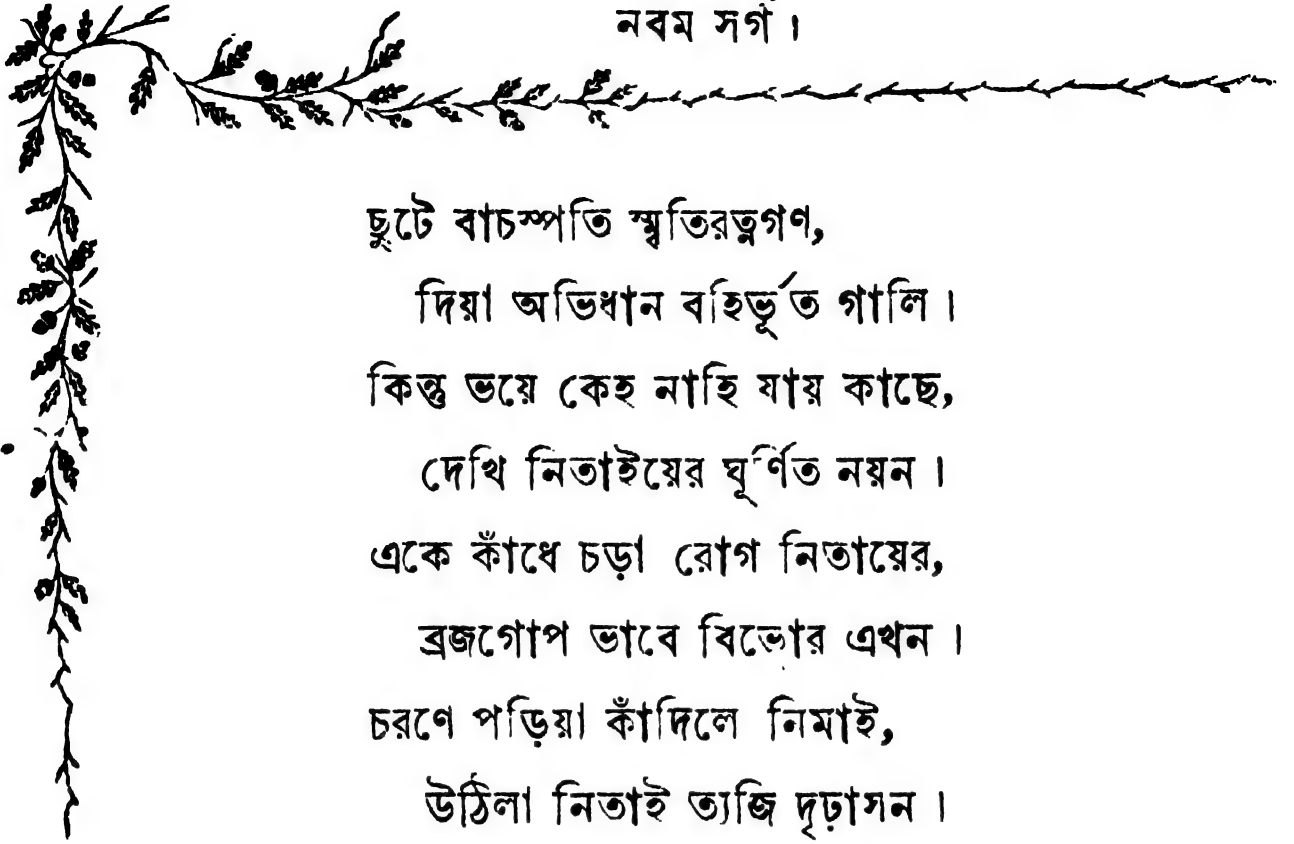 নবম সর্গ।
ছুটে বাচস্পতি স্মৃতিরত্নগণ,
দিয়া অভিধান বহির্ভূত গালি।
কিন্তু ভয়ে কেহ নাহি যায় কাছে,
দেখি নিতাইয়ের ঘূর্ণিত নয়ন।
একে কাঁধে চড়া রোগ নিতায়ের,
ব্রজগোপ ভাবে বিভোর এখন।
চরণে পড়িয়া কাঁদিলে নিমাই,
উঠিলা নিতাই ত্যজি দৃঢ়াসন।